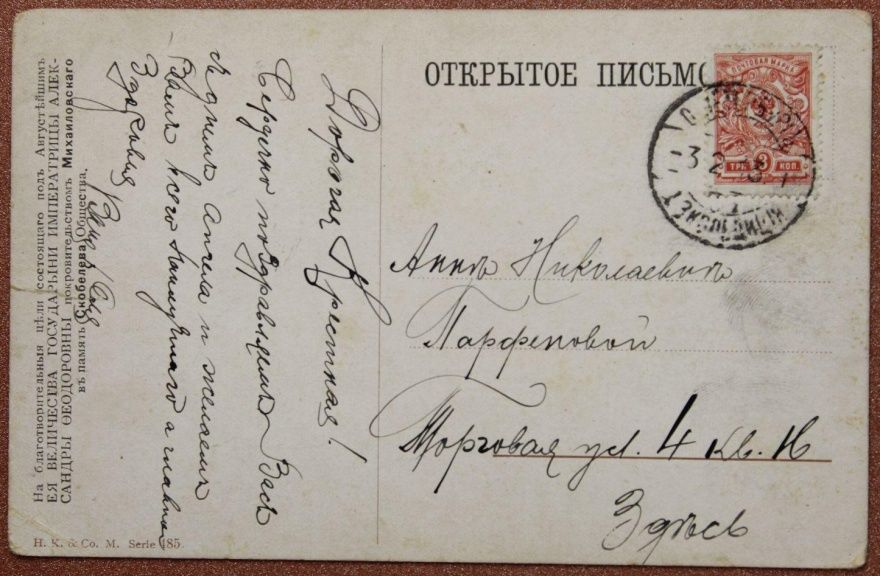 ОТКРЫТОЕ ПИСЬМО
ПОЧТОВАЯ МАРКА
ТРИ 3 КОП.
3 2
Аннѣ Николаевнѣ
Парфеновой
Торговая ул. 4 кв. 16
Здѣсь
Дорогая Крестная!
Сердечно поздравляемъ Васъ
съ днемъ Ангела и желаемъ
Вамъ всего наилучшаго а главное
Здоровія
На благотворительныя цѣли состоящаго подъ Августѣйшимъ
ЕЯ ВЕЛИЧЕСТВА ГОСУДАРЫНИ ИМПЕРАТРИЦЫ АЛЕК-
САНДРЫ ѲЕОДОРОВНЫ покровительствомъ Михайловскаго
въ память Скобелева Общества.
H. K. & Co. M. Serie 485.